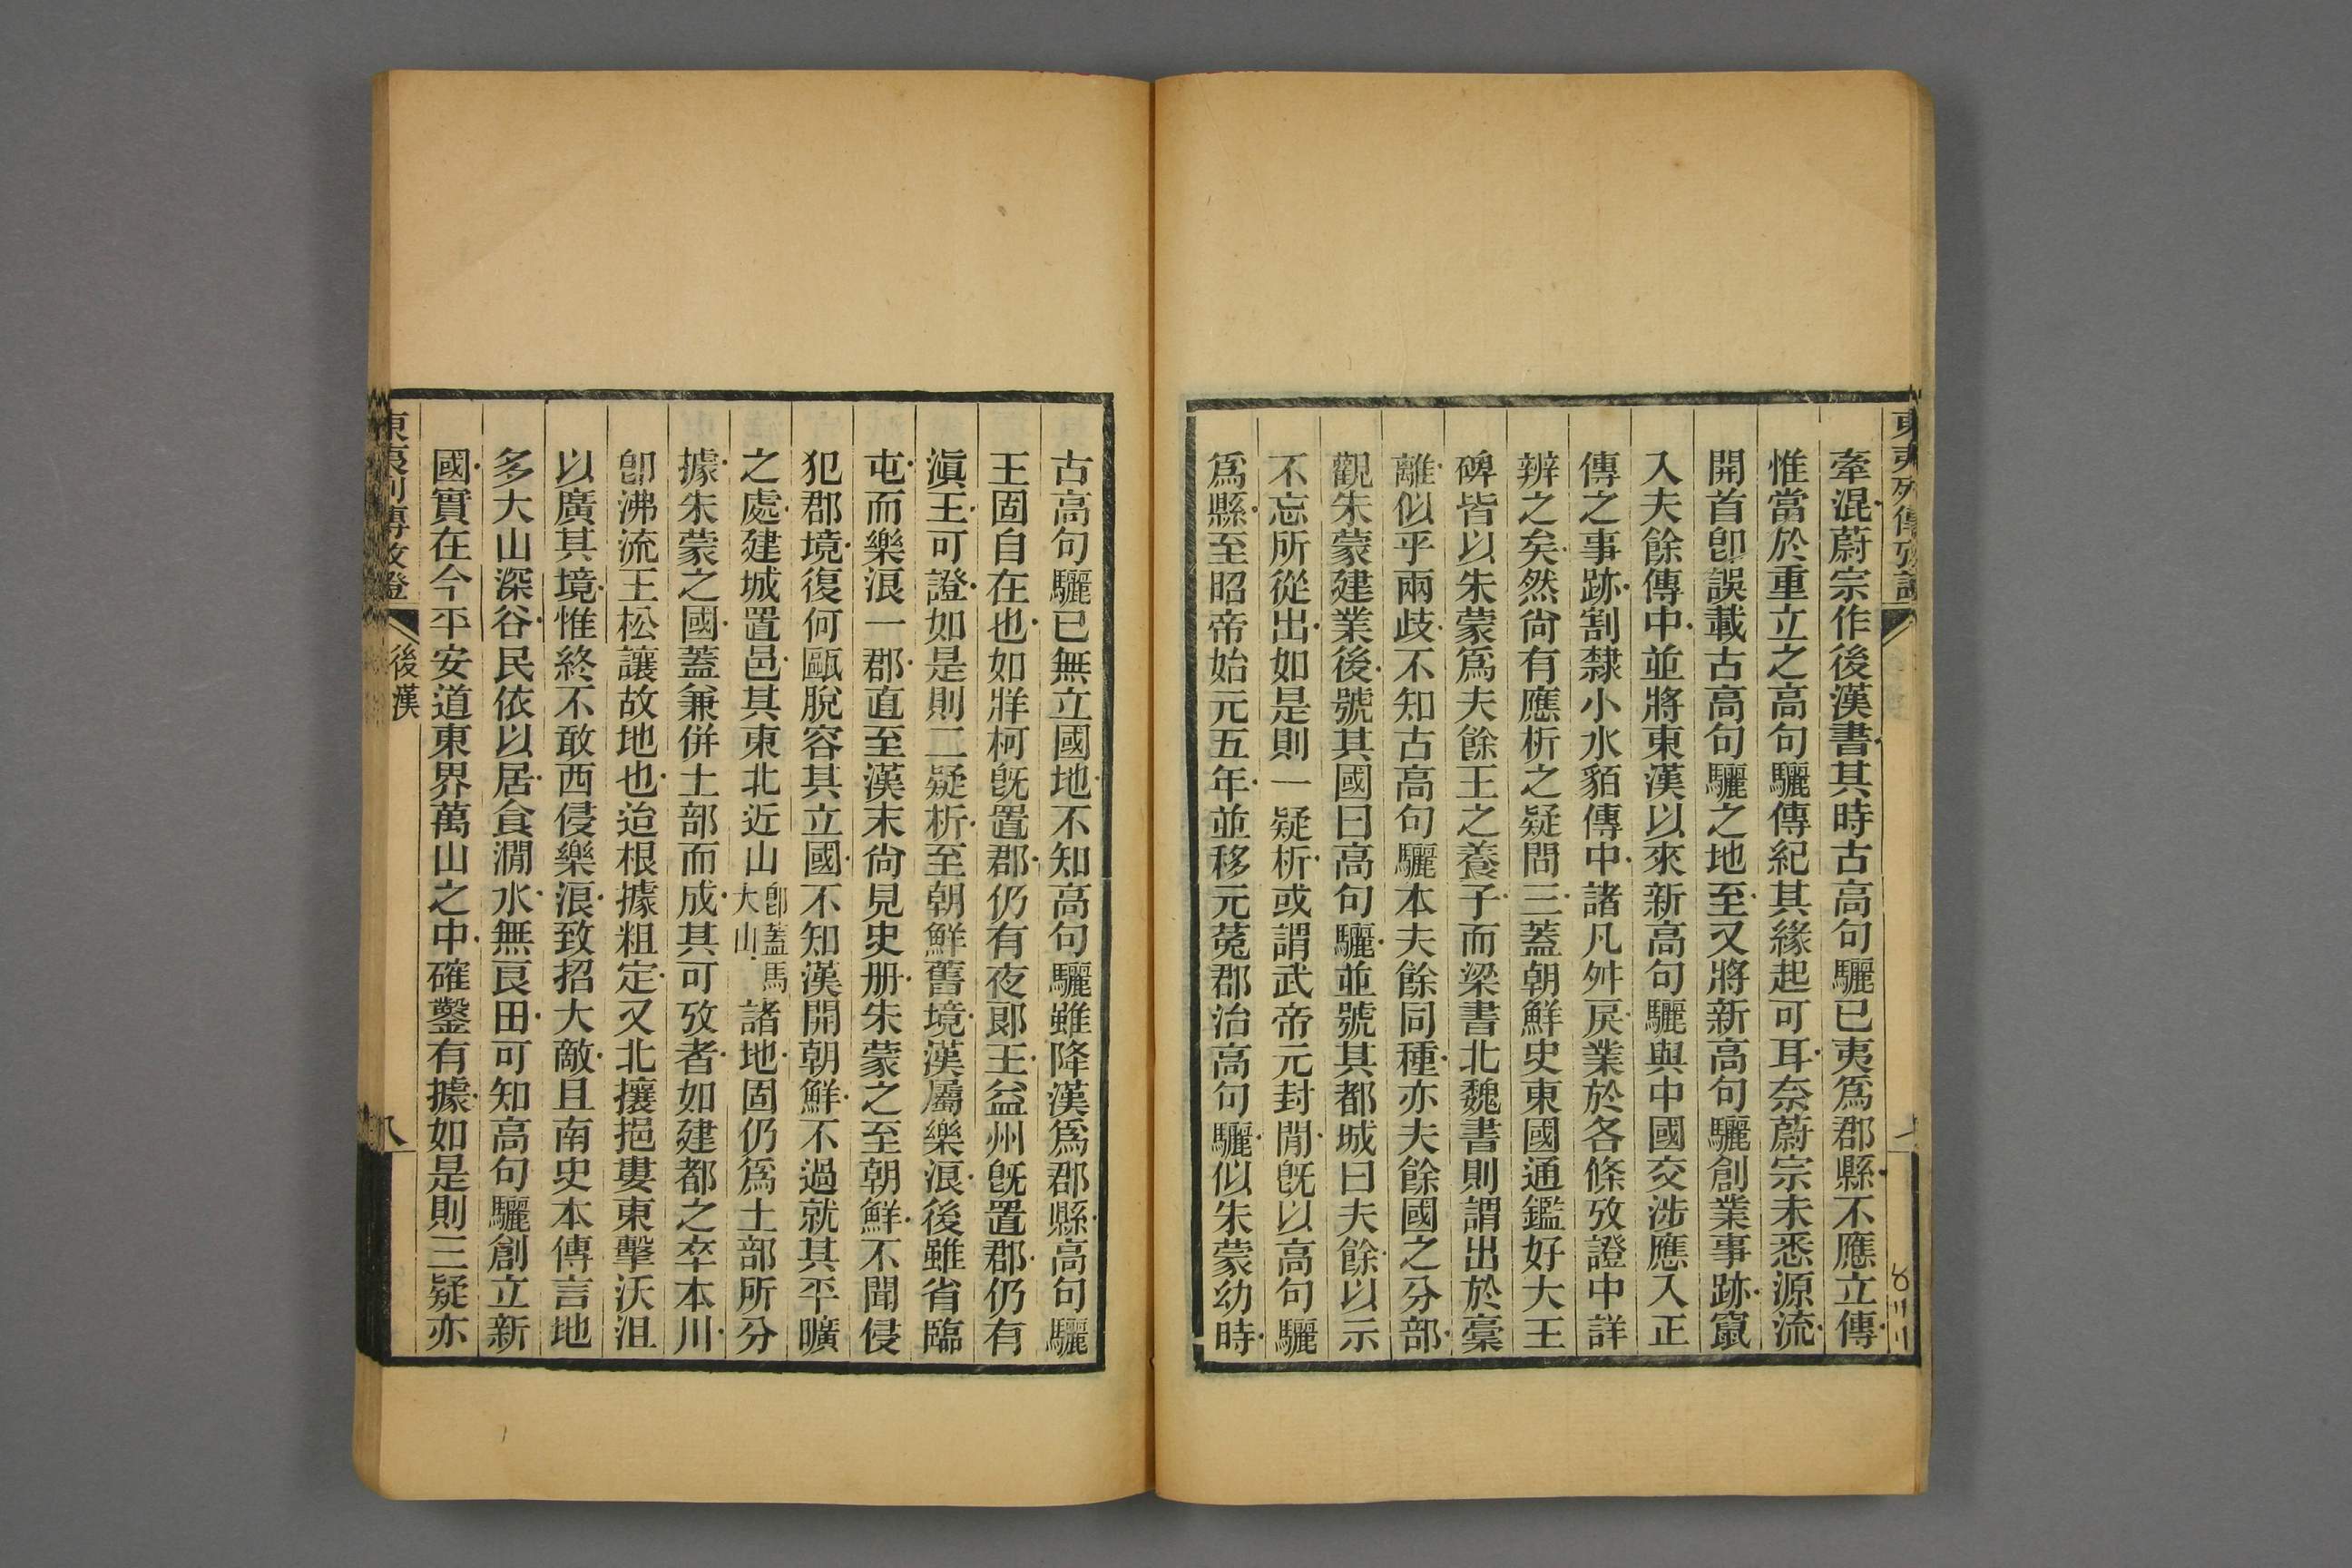 東夷列傳攷證
牽混蔚宗作後漢書其時古高句驪已夷爲郡縣不應立傳
惟當於重立之高句驪傳紀其緣起可耳奈蔚宗未悉源流
開首卽誤載古高句驪之地至又將新高句驪創業事跡竄
入夫餘傳中並將東漢以來新高句驪與中國交涉應入正
傳之事跡割隸小水貊傳中諸凡舛戾業於各條攷證中詳
辨之矣然尙有應析之疑問三蓋朝鮮史東國通鑑好大王
碑皆以朱蒙爲夫餘王之養子而梁書北魏書則謂出於槀
離似乎兩歧不知古高句驪本夫餘同種亦夫餘國之分部
觀朱蒙建業後號其國曰高句驪並號其都城曰夫餘以示
不忘所從出如是則一疑析或謂武帝元封閒旣以高句驪
爲縣至昭帝始元五年並移元菟郡治高句驪似朱蒙幼時
古高句驪已無立國地不知高句驪雖降漢爲郡縣高句驪
王固自在也如牂柯旣置郡仍有夜郞王益州旣置郡仍有
滇王可證如是則二疑析至朝鮮舊境漢屬樂浪後雖省臨
屯而樂浪一郡直至漢末尙見史册朱蒙之至朝鮮不聞侵
犯郡境復何甌脫容其立國不知漢開朝鮮不過就其平曠
之處建城置邑其東北近山卽蓋馬大山諸地固仍爲土部所分
據朱蒙之國蓋兼併土部而成其可攷者如建都之卒本川
卽沸流王松讓故地也迨根據粗定又北攘挹婁東擊沃沮
以廣其境惟終不敢西侵樂浪致招大敵且南史本傳言地
多大山深谷民依以居食澗水無良田可知高句驪創立新
國實在今平安道東界萬山之中確鑿有據如是則三疑亦
東夷列傳攷證
後漢
八